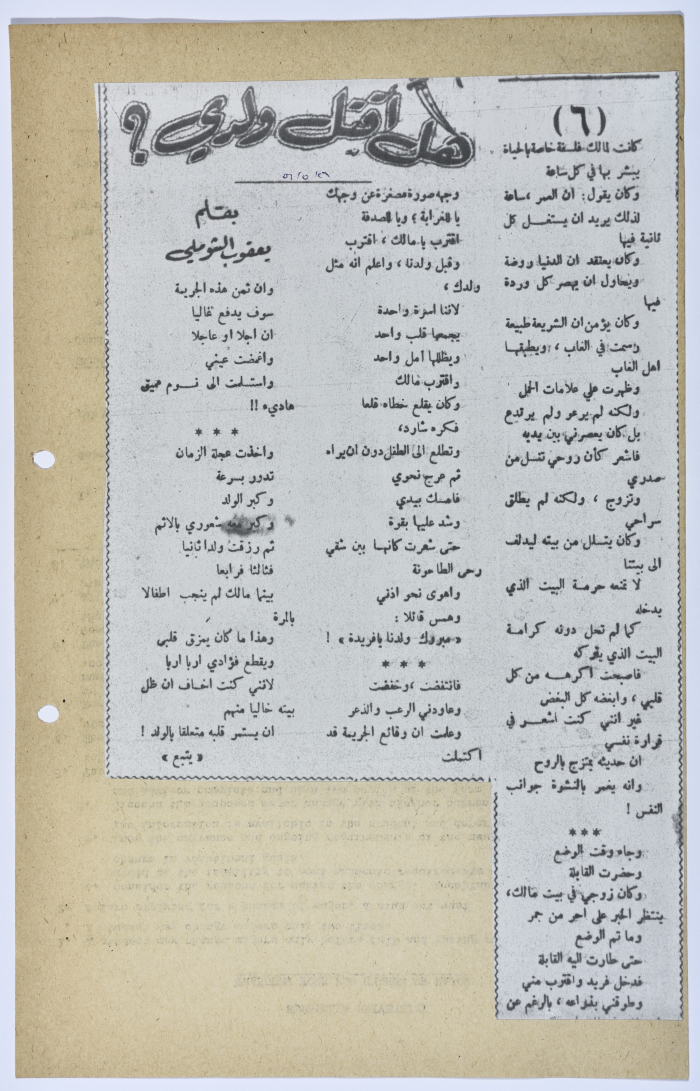 هل أقتل ولدي ؟
بقلم
يعقوب الشوملي
(٦)
كانت لمالك فلسفة خاصة بالحياة
يبشر بها في كل ساعة
وكان يقول : ان العمر ، ساعة
لذلك يريد ان يستغـل كل
ثانية فيها
وكان يعتقد ان الدنيا روضة
ويحاول ان يهصر كل وردة
فيها
وكان يؤمن ان الشريعة طبيعة
رسمت في الغاب ، ويطبقها
اهل الغاب
وظهرت علي علامات الحمل
ولكنه لم يرعو ولم يرتدع
بل كان يعصرني بين يديه
فاشعر كأن روحي تنسل من
صدري
وتزوج ، ولكنه لم يطلق
سراحي
وكان يتسلل من بيته ليدلف
الى بيتنا
لا تمنعه حرمة البيت الذي
يدخله
كما لم تحل دونه كرامة
البيت الذي يتركه
فاصبحت اكرهـه من كل
قلبي ، وابغضه كل البغض
غير انني كنت اشعر في
قرارة نفسي
ان حديثه يمتزج بالروح
وانه يغمر بالنشوة جوانب
النفس !
***
وجاء وقت الوضع
وحضرت القابلة
وكان زوجي في بيت مالك،
ينتظر الخبر على احر من جمر
وما تم الوضع
حتى طارت اليه القابلة
فدخل فريد واقترب مني
وطوقني بذراعه ، بالرغم عن
وجهه صورة مصغرة عن وجهك
يا للغرابة ؛ ويا للصدفة
اقترب يا مالك ، اقترب
وقبل ولدنا ، واعلم انه مثل
ولدك ،
لاننا اسرة واحدة
يجمعها قلب واحد
ويظللها امل واحد
واقترب مالك
وكان يقلع خطاه قلعا
فكره شارد،
وتطلع الى الطفل دون ان يراه
ثم عرج نحوي
فامسك بيدي
وشد عليها بقوة
حتى شعرت كانها بين شقي
رحى الطاحونة
واهوى نحو اذني
وهمس قائلا :
« مبروك ولدنا يا فريدة » !
* * *
فانتفضت ، وخفضت
وعاودني الرعب والذعر
وعلمت ان وقائع الجريمة قد
اكتملت
وان ثمن هذه الجريمة
سوف يدفع غاليا
ان اجلا او عاجلا
واغمضت عيني
واستسلمت الى نـوم عميق
هادىء !!
* * *
واخذت عجلة الزمان
تدور بسرعة
وكبر الولد
وكبر معه شعوري بالاثم
ثم رزقت ولدا ثانيا
فثالثا فرابعا
بينما مالك لم ينجب اطفالا
بالمرة
وهذا ما كان يمزق قلبي
ويقطع فؤادي اربا اربا
لانني كنت اخاف ان ظل
بيته خاليا منهم
ان يستمر قلبه متعلقا بالولد !
« يتبع »